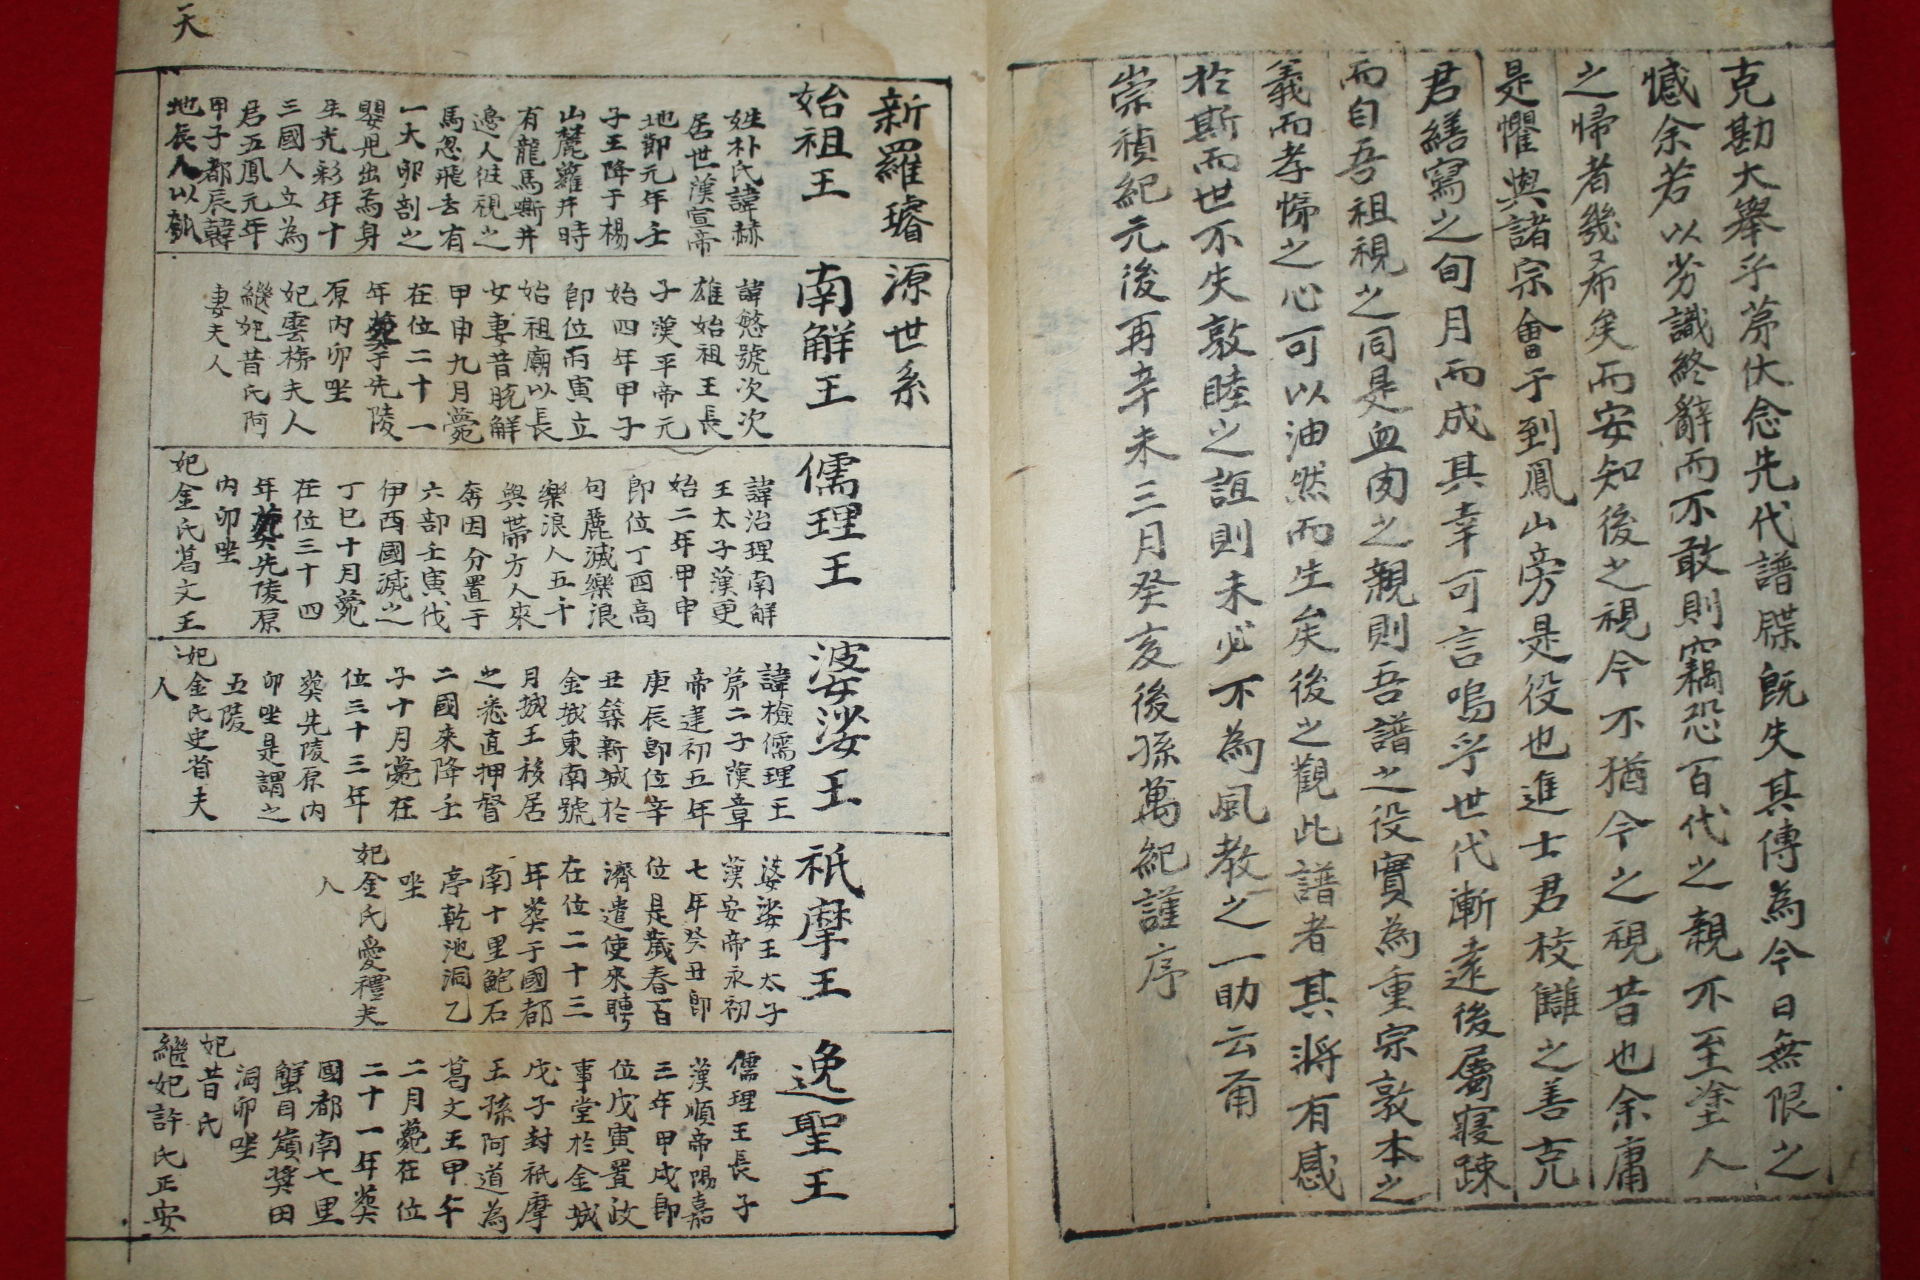 克勘大舉乎苐伏念先代譜牒旣失其傳為今日無限之
憾余若以劣識終辭而不敢則竊恐百代之親不至塗人
之歸者幾希矣而安知後之視今不猶今之視昔也余庸
是懼與諸宗會于到鳳山旁是役也進士君校讎之善克
君繕寫之旬月而成其幸可言嗚乎世代漸遠後屬寢踈
而自吾祖視之同是血肉之親則吾譜之役實為重宗敦本之
義而孝悌之心可以油然而生矣後之觀此譜者其將有感
於斯而世不失敦睦之誼則未必不為風教之一助云甭
崇禎紀元後再辛未三月癸亥後孫萬紀謹序
天
新羅璿源世系
始祖王
姓朴氏諱赫
居世漢宣帝
地節元年壬
子王降于楊
山麓蘿井時
有龍馬嘶井
邊人徃視之
馬忽飛去有
一大卵剖之
嬰兒出焉身
生光彩年十
三國人立為
君五鳳元年
甲子都辰韓
地辰人以瓠
南解王
諱慜號次次
雄始祖王長
子漢平帝元
始四年甲子
卽位丙寅立
始祖廟以長
女妻昔脫解
甲申九月薨
在位二十一
年葬于先陵
原內卯坐
妃雲梯夫人
繼妃昔氏阿
妻夫人
儒理王
諱治理南解
王太子漢更
始二年甲申
卽位丁酉高
句麗滅樂浪
樂浪人五千
與帶方人來
奔因分置于
六部壬寅伐
伊西國滅之
丁巳十月薨
在位三十四
年葬先陵原
內卯坐
妃金氏葛文王
婆娑王
諱檢儒理王
苐二子漢章
帝建初五年
庚辰卽位辛
丑築新城於
金城東南號
月城王移居
之悉直押督
二國來降壬
子十月薨在
位三十三年
葬先陵原內
卯坐是謂之
五陵
妃金氏史省夫
人
祇摩王
婆娑王太子
漢安帝永初
七年癸丑卽
位是歲春百
濟遣使來聘
在位二十三
年葬于國都
南十里鮑石
亭乾池洞乙
坐
妃金氏愛禮夫
人
逸聖王
儒理王長子
漢順帝陽嘉
三年甲戌卽
位戊寅置政
事堂於金城
戊子封祇摩
王孫阿道為
葛文王甲午
二月薨在位
二十一年葬
國都南七里
蟹目嶺奬田
洞卯坐
妃昔氏
繼妃許氏正安